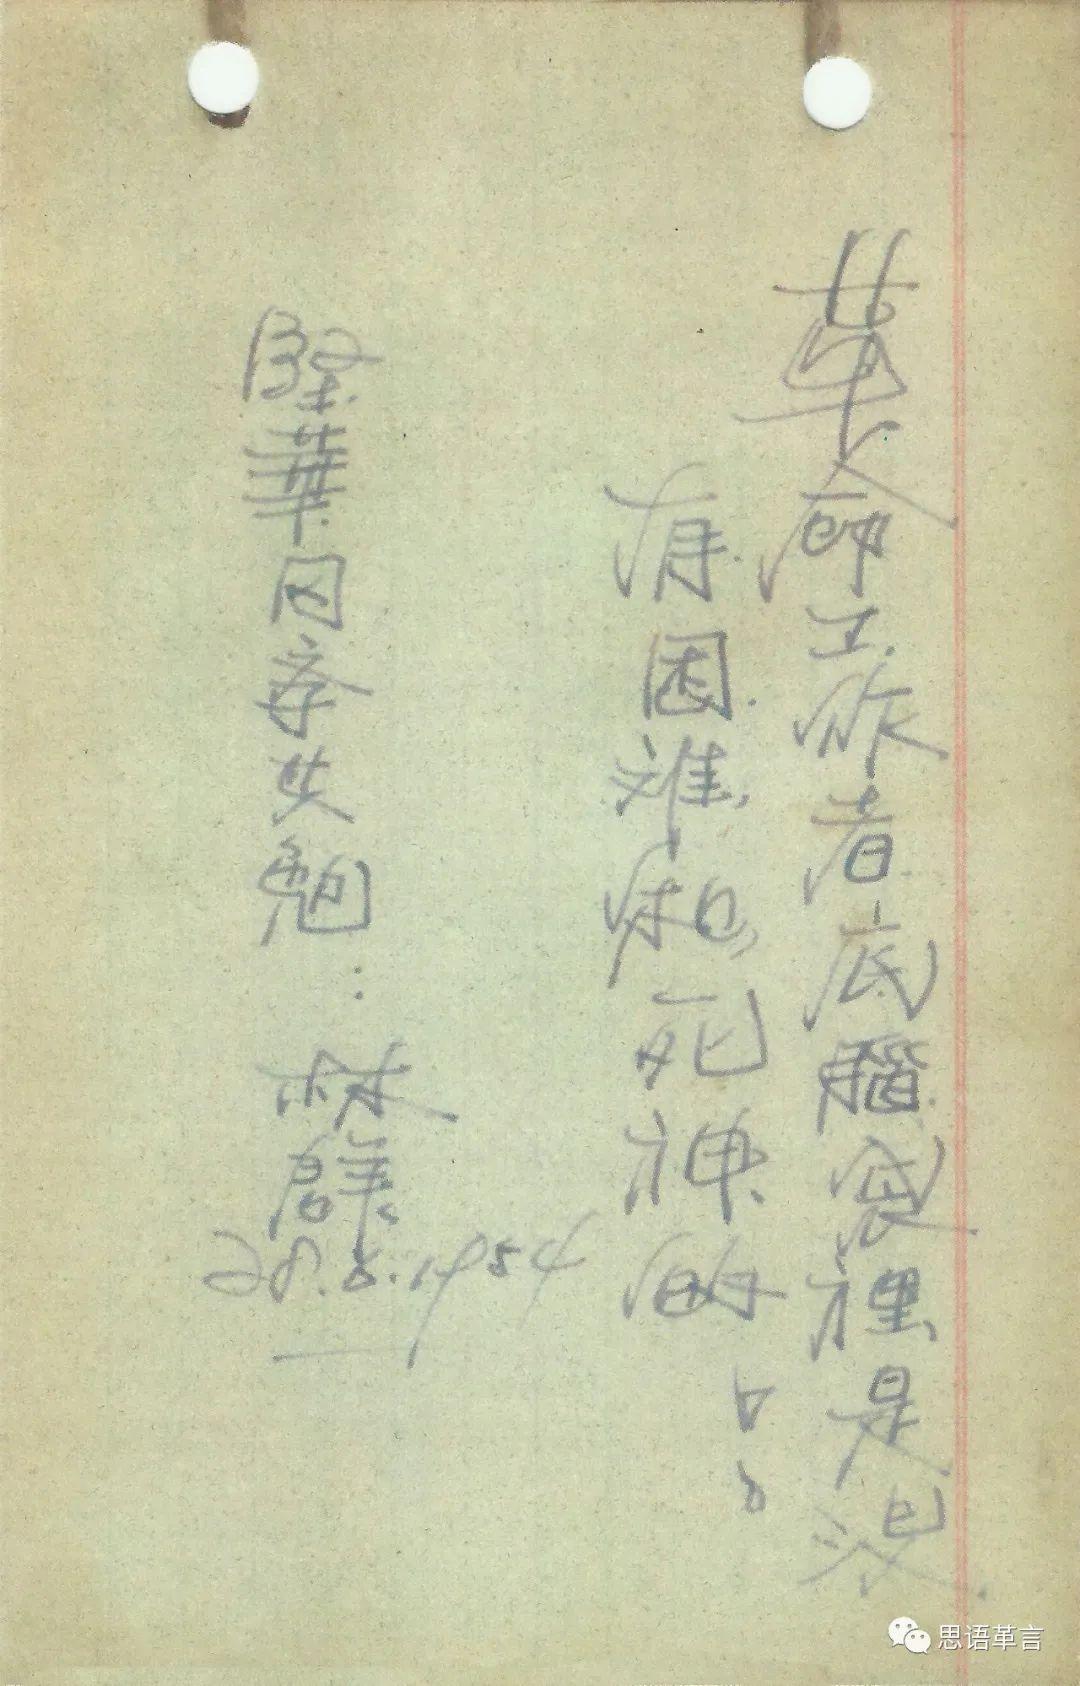 革命工作者底腦袋裡是沒
有困难和死神的！！
堅華同斈共勉：
林群
28.8.1954
思语革言